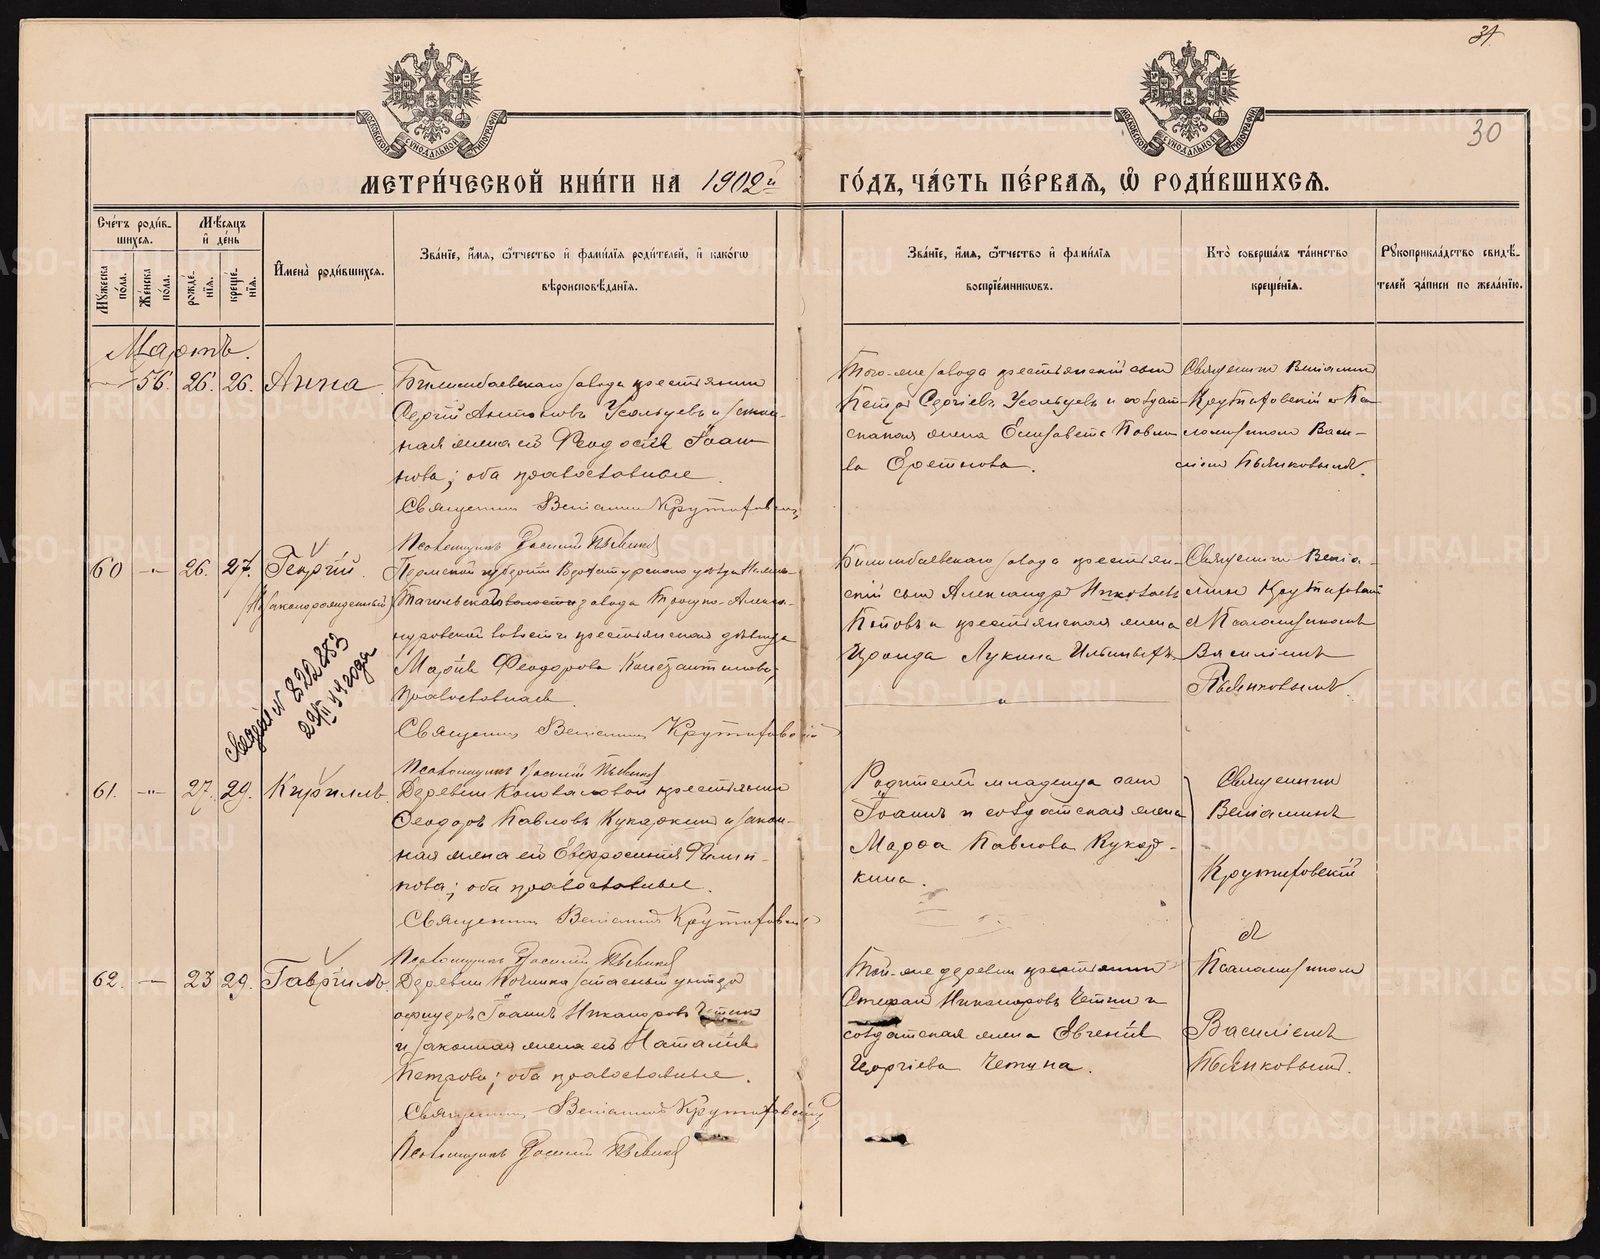 31
30
МЕТРИЧЕСКОЙ КНИГИ НА 1902й ГОДЪ, ЧАСТЬ ПЕРВАЯ, Ѡ РОДИВШИХСЯ.
Счетъ родившихся.
Мужеска пола.
Женска пола.
Мѣсяцъ и день
рожденія.
крещенія.
Имена родившихся.
Званіе, имя, отчество и фамилія родителей, и какогω вѣроисповѣданія.
Званіе, имя, отчество и фамилія воспріемниковъ.
Кто совершалъ таинство крещенія.
Рукоприкладство свидѣтелей записи по желанію.
Мартъ.
56. 26. 26. Анна
Билимбаевскаго завода крестьянинъ
Сергій Антоновъ Усольцевъ и закон-
ная жена его Феодосія Іоан-
нова; оба православные
Священникъ Веніаминъ Крутиховскій
Псаломщикъ Василій Пьянковъ
Того-же завода крестьянскій сынъ
Петръ Сергіевъ Усольцевъ и солдат-
ская жена Елизавета Павло-
ва Еретнова.
Священникъ Веніаминъ
Крутиховскій съ Пса-
ломщикомъ Васи-
ліемъ Пьянковымъ.
60 26. 27. Георгій.
(Незаконорожденный)
Пермской губерніи Верхотурскаго уѣзда Нижне-
Тагильскаго завода Троицко-Алекса-
ндровской волости крестьянская дѣвица
Марія Феодорова Константинова,
православная.
Священникъ Веніаминъ Крутиховскій
Псаломщикъ Василій Пьянковъ
Билимбаевскаго завода крестьян-
скій сынъ Александръ Николаевъ
Поповъ и крестьянская жена
Ираида Лукина Ильиныхъ
Священникъ Веніа-
минъ Крутиховскій
съ Псаломщикомъ
Василіемъ
Пьянковымъ.
61. 27. 29. Кириллъ.
Деревни Коноваловой крестьянинъ
Феодоръ Павловъ Кукаркинъ и закон-
ная жена его Евфросинія Филип-
пова; оба православные.
Священникъ Веніаминъ Крутиховскій
Псаломщикъ Василій Пьянковъ
Родителей младенца сынъ
Іоаннъ и солдатская жена
Марфа Павлова Кукар-
кина.
Священникъ
Веніаминъ
Крутиховскій
съ
Псаломщикомъ
Василіемъ
Пьянковымъ.
62. 23 29. Гавріилъ.
Деревни запасный унтеръ
офицеръ Іоаннъ Никаноровъ Четинъ
и законная жена его Наталія
Петрова; оба православные.
Священникъ Веніаминъ Крутиховскій
Псаломщикъ Василій Пьянковъ
Той-же деревни крестьянинъ
Стефанъ Никаноровъ Четинъ и
солдатская жена Евгенія
Георгіева Четина.
METRIKI.GASO-URAL.RU